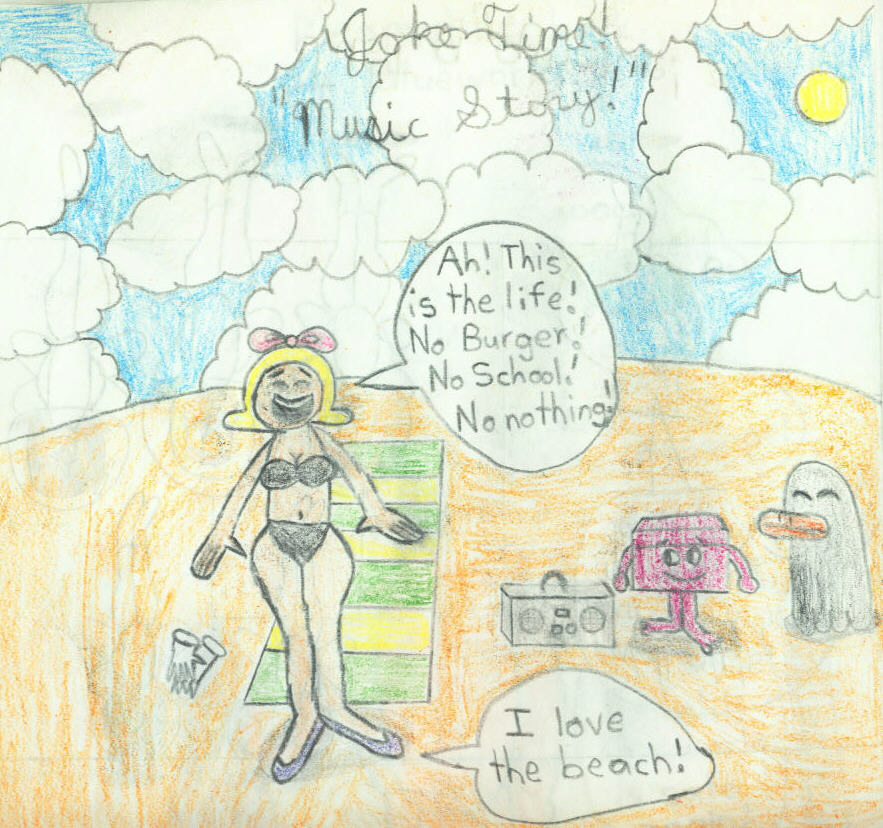 Joke Time!
"Music Story!"
Ah! This
is the life!
No Burger!
No School!
No nothing!
I love
the beach!